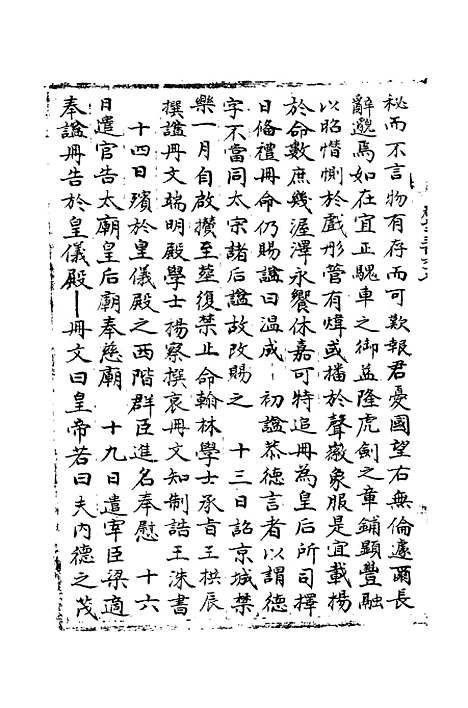 秘而不言物有存而可歎報君憂國望右無倫遽爾長
辭邈焉如在宜正騩車之御益隆虎劍之章鋪顯豐融
以昭惜惻於戲彤管有煒或播於聲徽象服是宜載揚
於命數庶幾渥澤永饗休嘉可特追冊為皇后所司擇
日備禮冊命仍賜諡曰温成 初諡恭德言者以謂德
字不當同太宗諸后諡故改賜之 十三日詔京城禁
樂一月自啟攢至塟復禁止命翰林學士承旨王拱辰
撰諡冊文端明殿學士楊察撰哀冊文知制誥王洙書
十四日殯於皇儀殿之西階群臣進名奉慰 十六
日遣官告太廟皇后廟奉慈廟 十九日遣宰臣梁適
奉諡冊告於皇儀殿 冊文曰皇帝若曰夫内德之茂